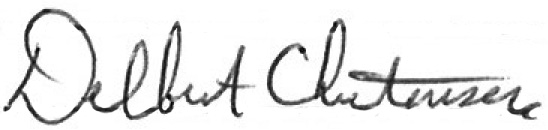 Delbert Christensen